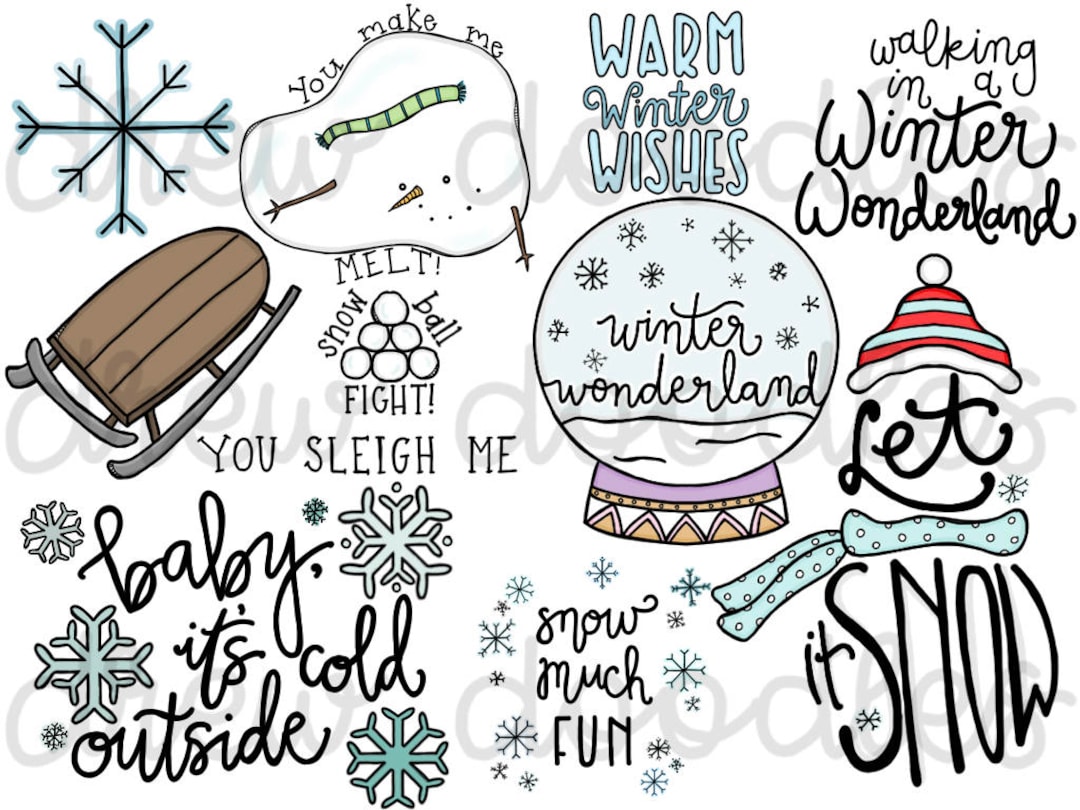 You make me
MELT!
WARM
Winter
WISHES
walking
in a
Winter
Wonderland
snow ball
FIGHT!
winter
wonderland
YOU SLEIGH ME
Let
it SNOW
baby,
it's cold
outside
snow
much
FUN
drew doodles
drew doodles
drew doodles
drew doodles